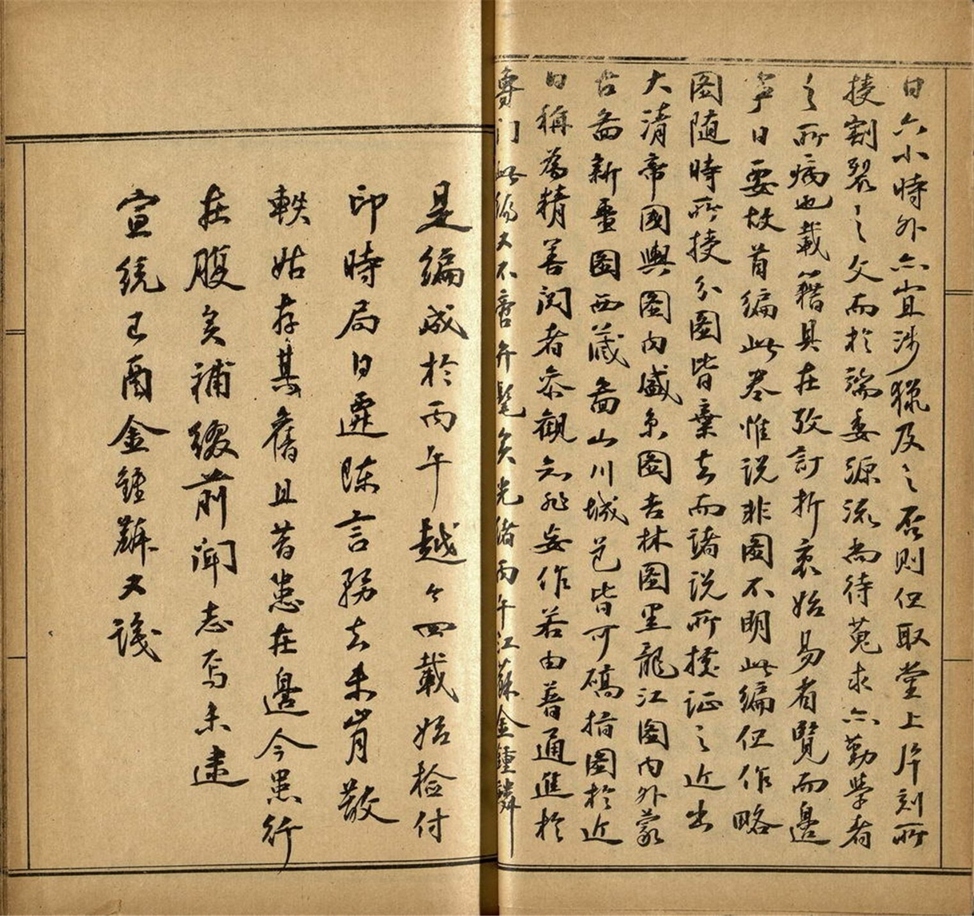 日六小時外亦宜涉獵及之否則但取堂上片刻所
授割裂之文而於端委源流尚待蒐求亦勤學者
之所病也載籍具在攷訂折衷始易省覽而邊
事日要故首編此卷惟說非圖不明此編但作略
圖隨時所授分圖皆棄去而諸說所據證之近出
大清帝國輿圖內盛京圖吉林圖黑龍江圖內外蒙
古圖新疆圖西藏圖山川城邑皆可碻指圖於近
日稱為精善閱者參觀知非妄作若由普通進於
專門此編又不啻弁髦矣光緒丙午江蘇金鍾麟
是編成於丙午越今四載始檢付
印時局日遷陳言務去未肯散
軼姑存其舊且昔患在邊今患行
在腹矣補綴前聞志焉未逮
宣統己酉金鍾麟又識